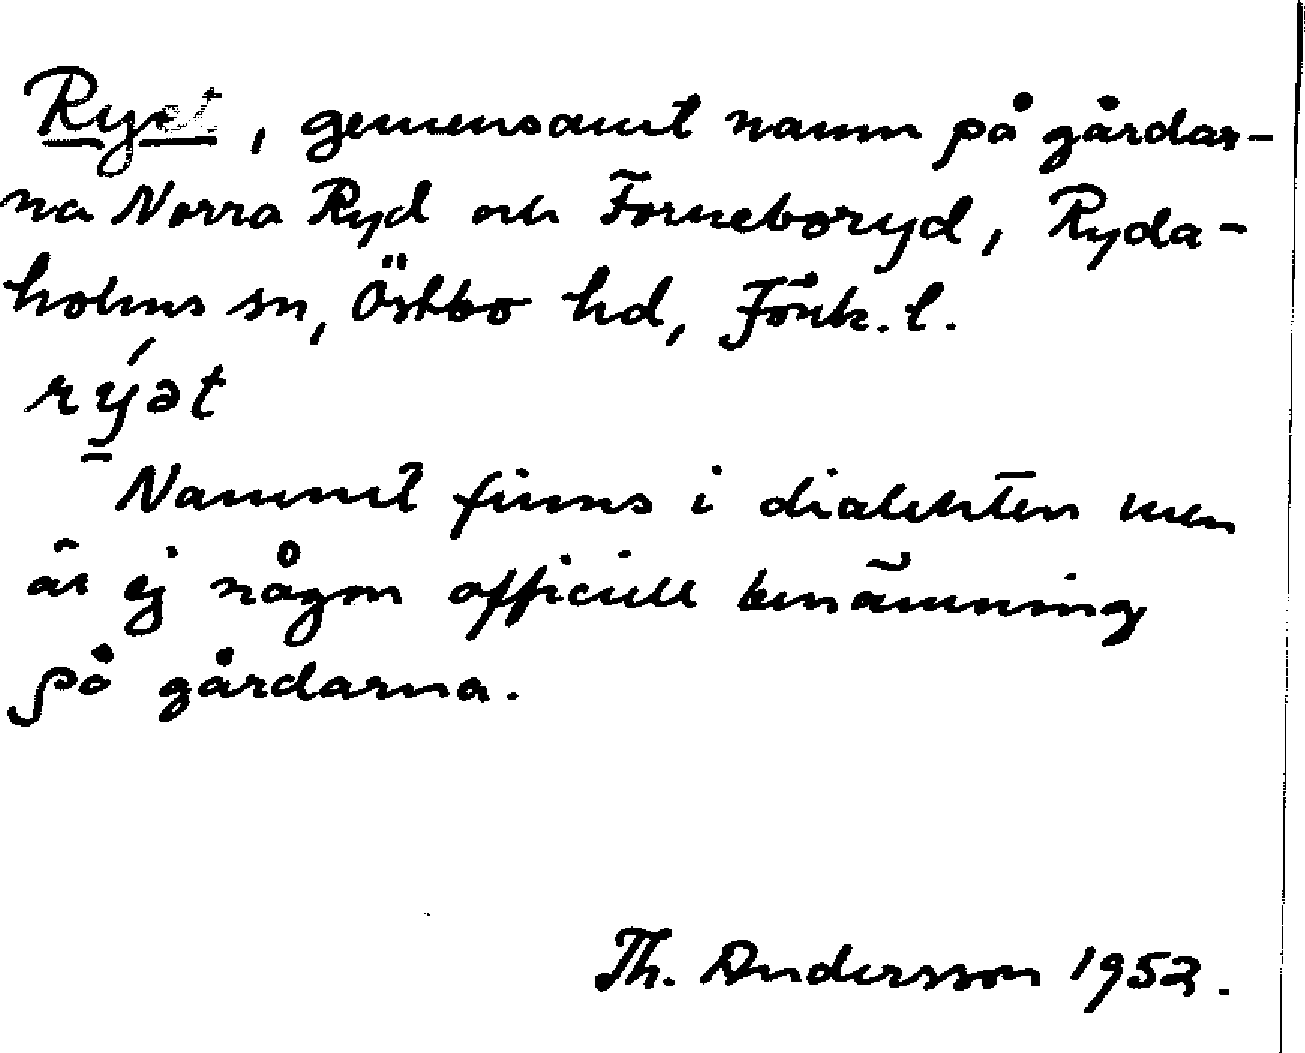 Ryet, gemensamt namn på gårdar-
na Norra Ryd och Forneboryd, Ryda-
holms sn, Östbo hd, Jönk. l.
rýət
Namnet finns i dialekten men
är ej någon officiell benämning
på gårdarna.
Th. Andersson 1952.